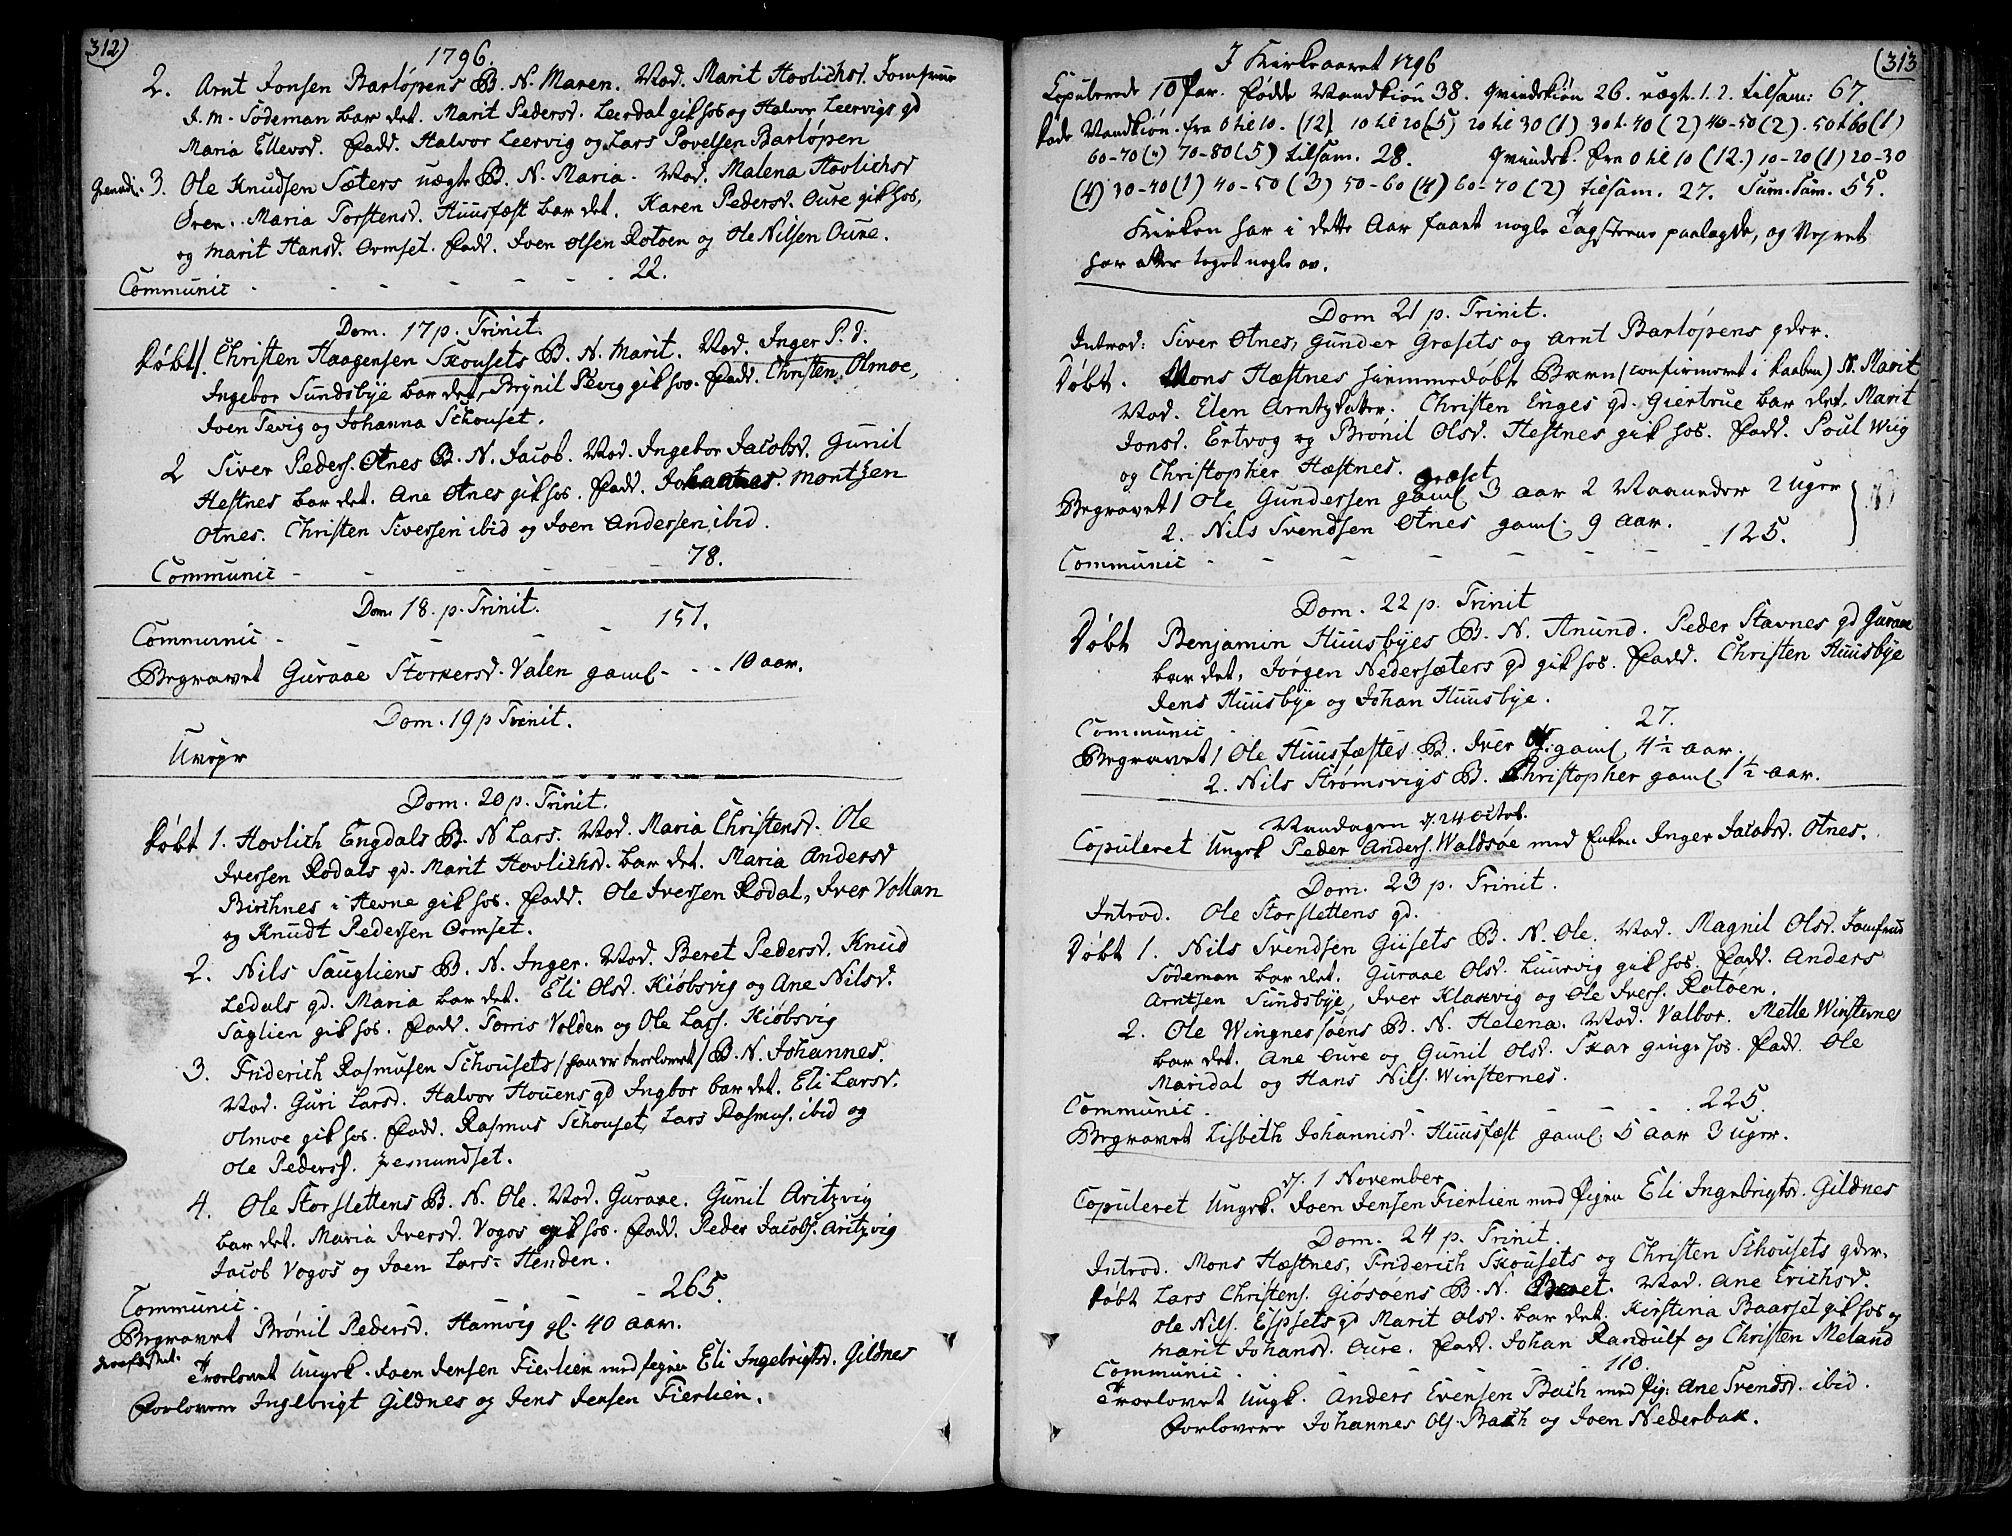 312)
1796.
2. Arnt Jonsen Barløpens B. N. Maren. Mod. Marit Hovlichsd. Jomfrue
I. M. Sødeman bar det. Marit Pedersd. Leerdal gik hos og Halvor Leervigs gd
Maria Ellevsd. Fadd. Halvor Leervig og Lars Povelsen Barløpen
3. Ole Knudsen Sæters uægte B. N. Maria. Mod. Malena Hovlichsd
Øren. Maria Torstensd. Huusfæst bar det. Karen Pedersd. Oure gik hos,
og Marit Hansd. Ormset. Fadd. Joen Olsen Rotøen og Ole Nilsen Oure.
Communic - - - - - - 22.
Dom. 17 p. Trinit.
Døbt 1. Christen Haagensen Skousets B. N. Marit. Mod. Inger P. d.
Ingebor Sundsbye bar det, Brynil Tevig gik hos. Fadd. Christen Olmoe,
Joen Tevig og Johanna Schouset.
2 Siver Peders. Otnes B. N. Jacob. Mod. Ingebor Jacobsd. Gunil
Hestnes bar det. Ane Otnes gik hos. Fadd. Johannes Montzen
Otnes. Christen Siversen ibid og Joen Andersen ibid.
Communic - - - - - 78.
Dom. 18. p. Trinit.
Communic - - - - - 151.
Begravet Guraae Storkersd. Valen gaml - - - 10 aar.
Dom. 19 p Trinit.
Uvejr
Dom. 20 p. Trinit.
Døbt 1. Hovlich Engdals B. N Lars. Mod. Maria Christensd. Ole
Iversen Rodals gd. Marit Hovlichsd. bar det. Maria Andersd
Birchnes i Hevne gik hos. Fadd. Ole Iversen Rodal, Iver Vollan
og Knudt Pedersen Ormset.
2. Nils Saugliens B. N. Inger. Mod. Beret Pedersd. Knud
Ledals gd. Maria bar det. Eli Olsd. Kiøbsvig og Ane Nilsd.
Saglien gik hos. Fadd. Torris Volden og Ole Lars. Kiøbsvig
3. Friderich Rasmusen Schousets / han er trolovet / B. N. Johannes.
Mod. Guri Larsd. Halvor Houens gd Ingbor bar det. Eli Larsd.
Olmoe gik hos. Fadd. Rasmus Schouset, Lars Rasmus. ibid og
Ole Peders. Jesmundset.
4. Ole Storslettens B. N. Ole. Mod. Guraae. Gunil Aritzvig
bar det. Maria Iversd. Vogos gik hos. Fadd. Peder Jacobs. Aritzvig
Jacob Vogos og Joen Lars. Henden.
Communic. - - - - 265.
Begravet Brønil Pedersd. Hamvig gl. 40 aar.
Troelovet Ungk. Joen Jensen Fierlien med pigen Eli Ingebrigtsd. Gildnes
Forlovere Ingebrigt Gildnes og Jens Jensen Fierlien.
(313
I Kirkeaaret 1796
Copulerede 10 Par. Fødde Mandkiøn 38. Qvindekiøn 26. uægt. 1. 2. tilsam: 67.
Døde Mandkiøn. fra 0 til 10. (12) 10 til 20 (5) 20 til 30 (1) 30 t. 40 (2) 40-50 (2). 50 t 60 (1)
60-70 70-80 (5) tilsam. 28. Qvindek. fra 0 til 10 (12.) 10-20 (1) 20-30
(4) 30-40 (1) 40-50 (3) 50-60 (4) 60-70 (2) tilsam. 27. Sum. Sum. 55.
Kirken har i dette Aar faaet nogle Tagsteene paalagde, og Vejret
har atter taget nogle av.
Dom 21 p. Trinit.
Introd: Siver Otnes, Gunder Græsets og Arnt Barløpens gder.
Døbt. Mons Hæstnes hiemmedøbt Barn (confirmeret i daaben) N. Marit
Mod. Elen Arntzdatter. Christen Enges gd. Giertrue bar det. Marit
Jonsd. Ertvog og Brønil Olsd. Hestnes gik hos. Fadd. Poul Wiig
og Christopher Hæstnes.
græset
Begravet 1 Ole Gundersen gaml 3 aar 2 Maaneder 2 uger
2. Nils Svendsen Otnes gaml. 9 aar.
Communic - - - - - - 125.
Dom. 22 p. Trinit
Døbt Benjamin Huusbyes B. N. Anund. Peder Stavnes gd Guraae
bar det, Jørgen Nedersæters gd gik hos. Fadd. Christen Huusbye
Jens Huusbye og Johan Huusbye.
Communic - - - - 27.
Begravet 1 Ole Huusfæstes B. Iver gaml 4½ aar.
2. Nils Strømsvigs B. Christopher gaml 1½ aar.
Mandagen d. 24 Octob.
Copuleret Ungk Peder Anders. Waldsøe med Enken Inger Jacobsd. Otnes.
Dom. 23 p. Trinit.
Introd. Ole Storslettens gd.
Døbt 1. Nils Svendsen Giisets B. N. Ole. Mod. Magnil Olsd. Jomfrud
Sødeman bar det. Guraae Olsd. Luurvig gik hos. Fadd. Anders
Arntsen Sundsbye, Iver Klakvig og Ole Ivers. Rotøen.
2. Ole Wingnessøens B. N. Helena. Mod. Valbor. Mette Winsternes
bar det. Ane Oure og Gunil Olsd. Skar ginge hos. Fadd. Ole
Maridal og Hans Nils. Winsternes.
Communic. - - - - 225.
Begravet Lisbeth Johannisd. Huusfæst gaml. 5 aar 3 uger.
d. 1 November
Copuleret Ungk. Joen Jensen Fierlien med Pigen Eli Ingebrigtsd. Gildnes
Dom. 24 p. Trinit.
Introd. Mons Hæstnes, Friderich Skousets og Christen Schousets gder.
Døbt Lars Christens. Giøsøens B. N. Beret. Mod. Ane Erichsd.
Ole Nils. Espsets gd Marit Olsd. bar det. Kirstina Baarset gik hos og
Marit Johansd. Oure. Fadd. Johan Randulf og Christen Meland
Communic. - - - 110.
Troelovet Ungk. Anders Evensen Bach med Pig: Ane Svendsd. ibid.
Forlovere Johannes Ols. Bach og Joen Nederbak.